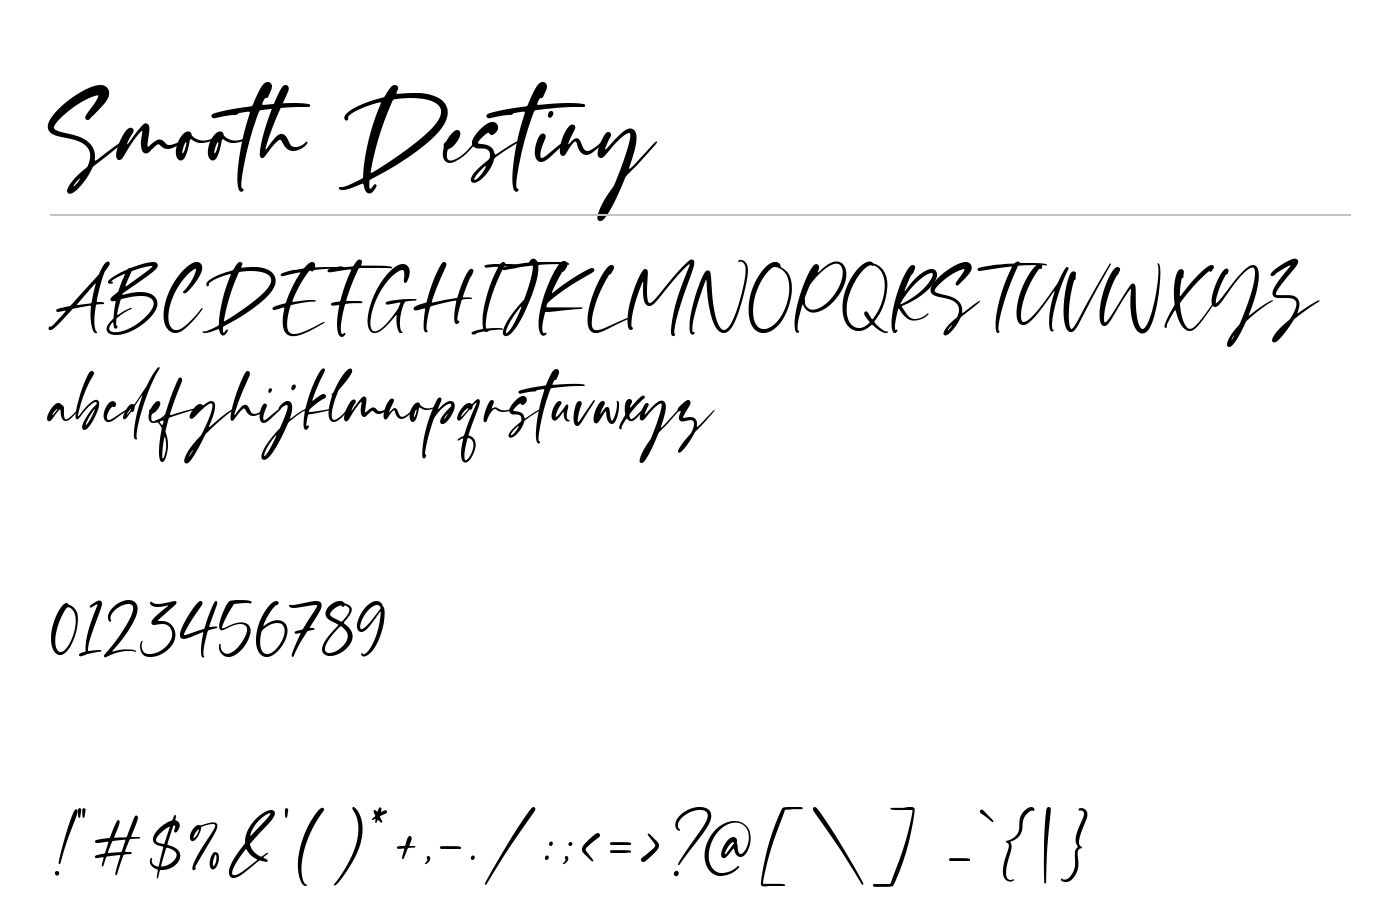 Smooth Destiny
ABCDEFGHIJKLMNOPQRSTUVWXYZ
abcdefghijklmnopqrstuvwxyz
0123456789
!"#$%&'()*+,-./:;<=>?@[\]_`{|}